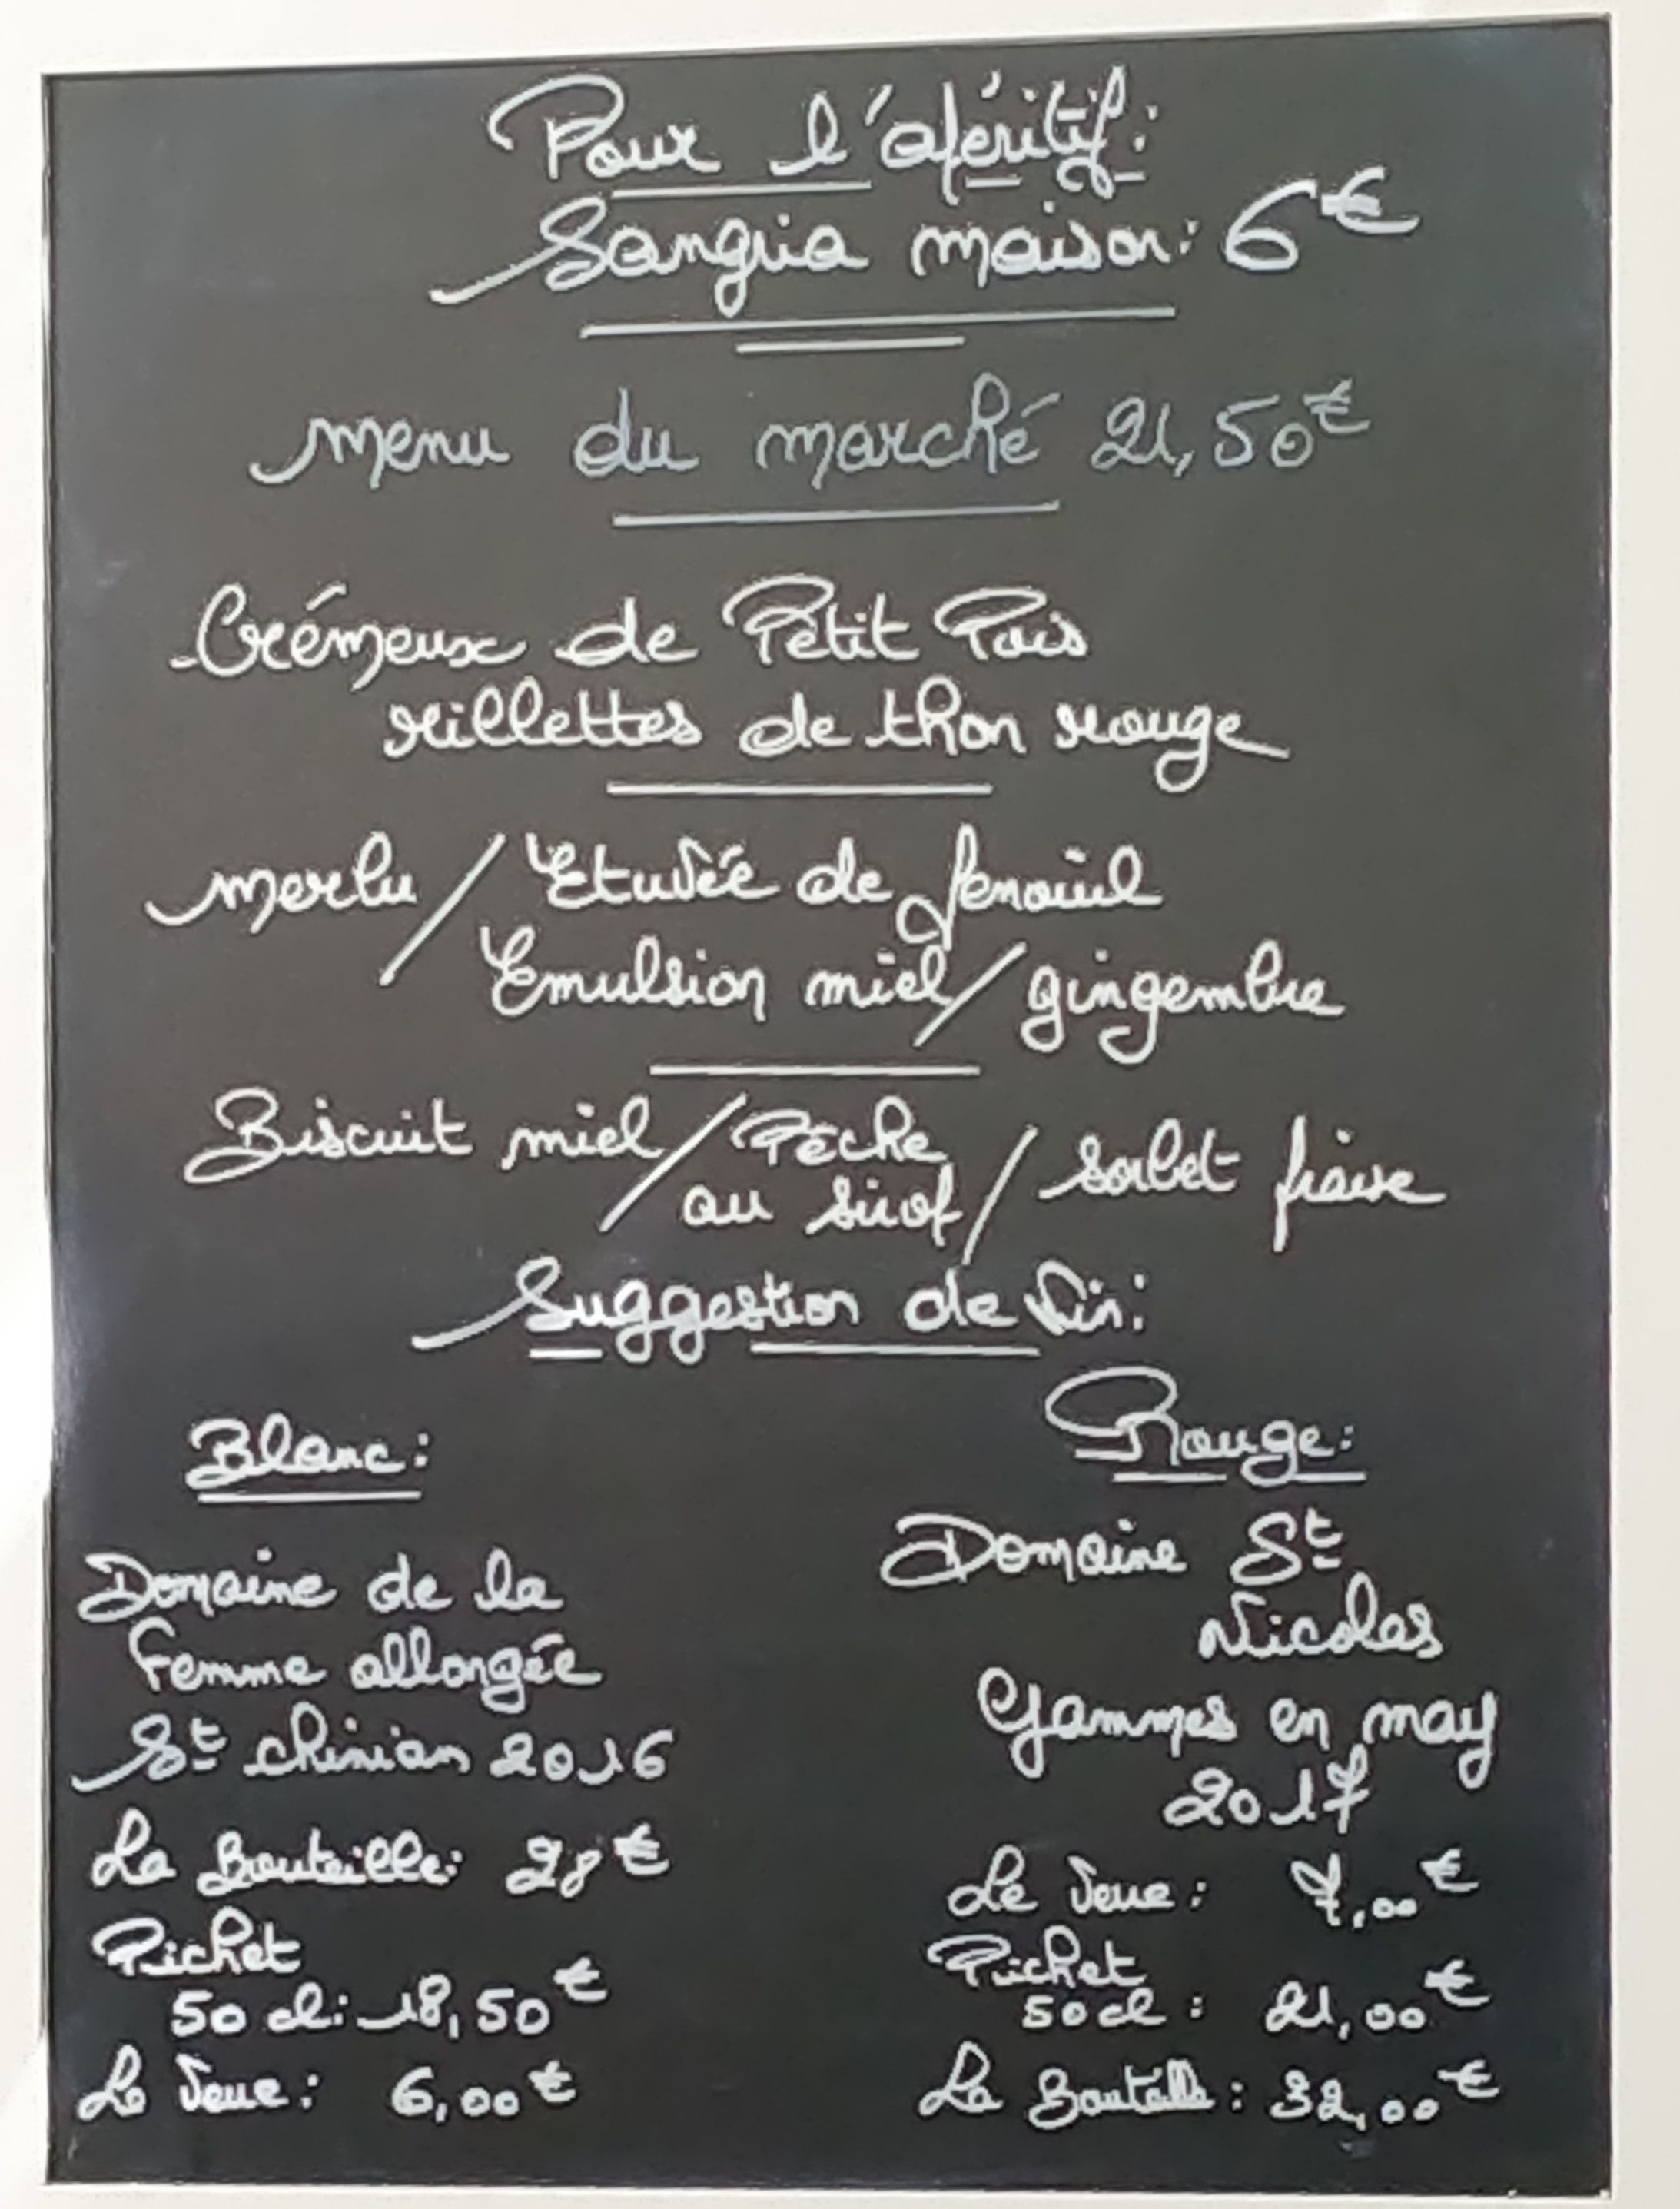 Pour l'apéritif:
Sangria maison: 6€
menu du marché 21,50€
-Crémeux de Petit Pois
rillettes de thon rouge
merlu / Etuvée de fenouil
Emulsion miel / gingembre
Biscuit miel / Pêche au sirop / sorbet fraise
Suggestion de Vin:
Blanc:
Domaine de la
Femme allongée
St chinian 2016
La Bouteille: 28€
Pichet
50 cl: 18,50€
Le Verre: 6,00€
Rouge:
Domaine St
Nicolas
Gammes en may
2017
Le Verre: 7,00€
Pichet
50 cl: 21,00€
La Bouteille: 32,00€